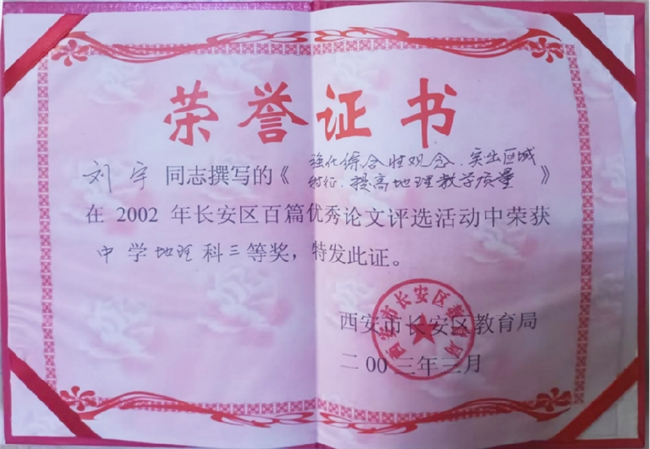 荣誉证书
强化综合性观念、突出区域
刘宇 同志撰写的《特征、提高地理教学质量》
在2002年长安区百篇优秀论文评选活动中荣获
中学地理科三等奖，特发此证。
西安市长安区教育局
二00三年三月
西安市长安区教育局